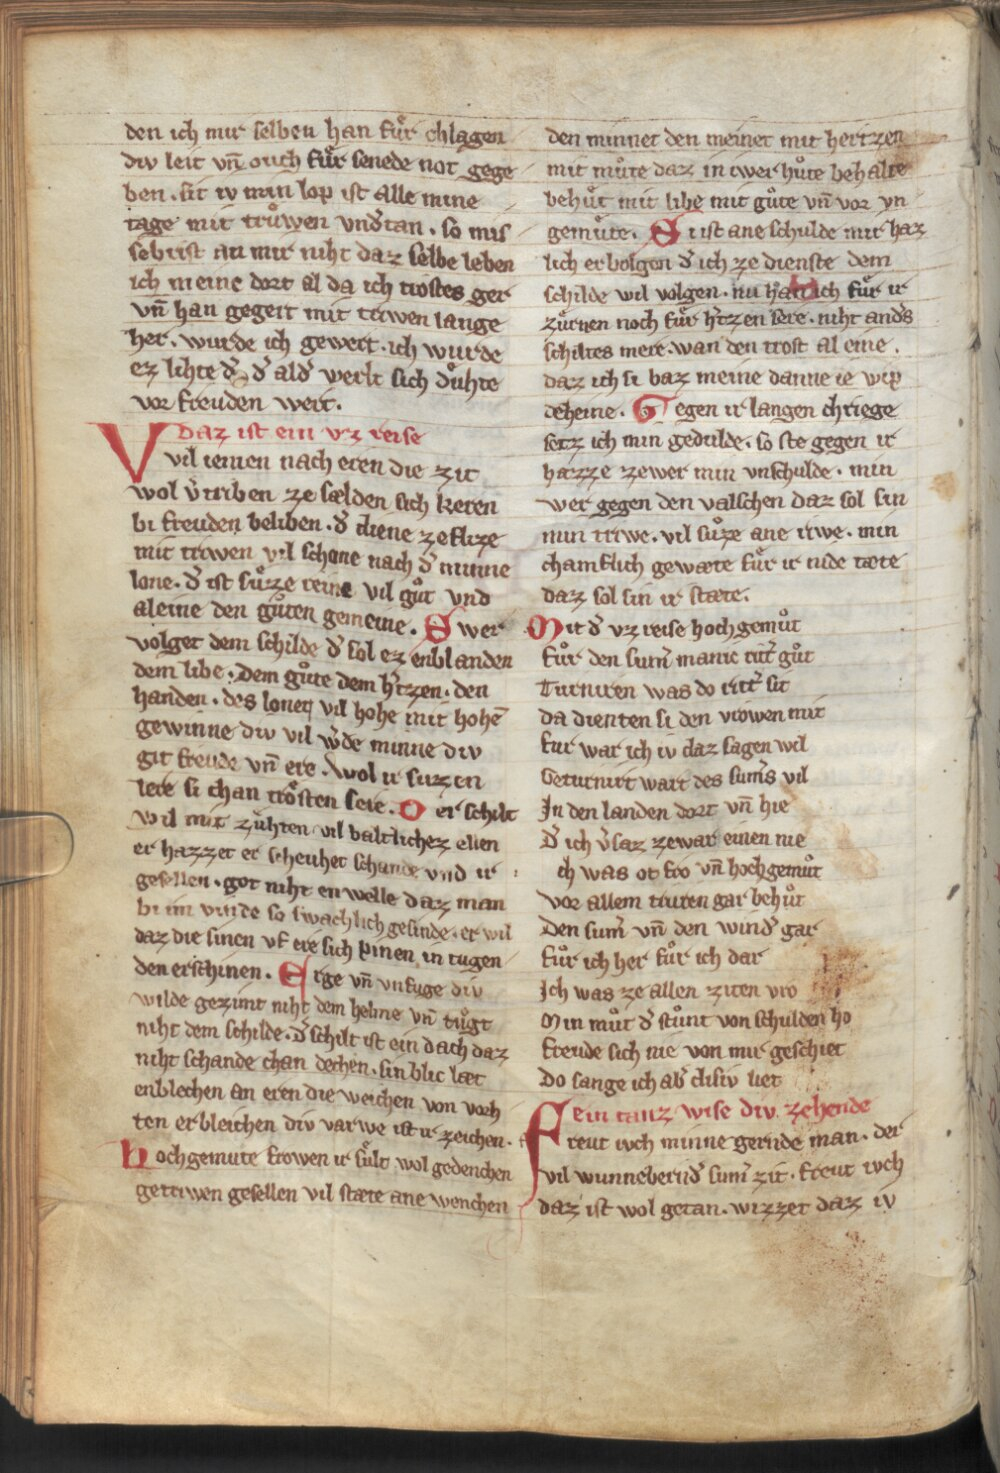 den ich mir selben han fuͤr chlagen
div leit vn̄ ouch fuͤr senede not gege
ben. sit iv min lop ist alle mine
tage mit truͤwen vnd̓tan. so mis
sebrist an mir niht daz selbe leben
ich meine dort al da ich trostes ger
vn̄ han gegert mit triwen lange
her. wurde ich gewert. ich wurde
ez lihte d̓ d̓ ald̓ werlt sich duͦhte
vor freuden wert.
daz ist ein vz reise
Vvil iemen nach eren die zit
wol v̓triben ze sælden sich keren
bi freuden beliben. d̓ diene ze flize
mit triwen vil schone nach d̓ minne
lone. d̓ ist suͤzze reine vil guͦt vnd
aleine den guͦten gemeine. Swer
volget dem schilde d̓ sol ez enblanden
dem libe. Dem guͦte dem h̓tzen. den
handen. des lonet vil hohe mit hohē
gewinne div vil w̓de minne div
git freude vn̄ ere. wol ir suzen
lere si chan troͤsten sere. Der schilt
wil mit zuͤhten vil baltlichez ellen
er hazzet er scheuhet schande vnd ir
gesellen. got niht en welle daz man
bi im vinde so swachlich gesinde. er wil
daz die sinen vf ere sich pinen in tugen
den erschinen. Erge vn̄ vnfuge div
wilde gezimt niht dem helme vn̄ tuͦgt
niht dem schilde. d̓ schilt ist ein dach daz
niht schande chan dechen. sin blic læt
enblechen an eren die weichen von vorh
ten erbleichen div varwe ist ir zeichen.
hochgemute frowen ir suͤlt wol gedenchen
getriwen gesellen vil stæte ane wenchen
den minnet den meinet mit hertzen
mit muͦte daz in iwer huͦte behalte
behuͦt mit libe mit guͦte vn̄ vor vn
gemuͤte. Si ist ane schulde mir haz
lich erbolgen d̓ ich ze dienste dem
schilde wil volgen. nu han ich fuͤr ir
zuͤrnen noch fuͤr h̓tzen sere. niht and̓s
schiltes mere. wan den trost al eine.
daz ich si baz meine danne ie wip
deheine. Gegen ir langen chriege
setz ich min gedulde. so ste gegen ir
hazze ze wer min vnschulde. min
wer gegen den valschen daz sol sin
min triwe. vil suͦze ane riwe. min
chamflich gewæte fuͤr ir nide tæte
daz sol sin ir stæte.
Mit d̓ vz reise hochgemuͦt
fuͦr den sum̓ manic ritt̓ guͦt
Turniren was do ritt̓ sit
da dienten si den vrowen mit
fur war ich iv daz sagen wil
Geturnirt wart des sum̓s vil
In den landen dort vn̄ hie
D̓ ich v̓saz zewar einen nie
ch was ot fro vn̄ hochgemuͦt
vor allem truren gar behuͦt
Den sum̓ vn̄ den wind̓ gar
fuͦr ich her fuͦr ich dar
Ich was ze allen ziten vro
Min muͦt d̓ stuͦnt von schulden ho
freude sich nie von mir geschiet
Do sange ich ab̓ disiv liet
ein tanz wise div zehende
Freut iuch minne gernde man. der
vil wunnebernd̓ sum̓ zit. freut iuch
daz ist wol getan. wizzet daz iv